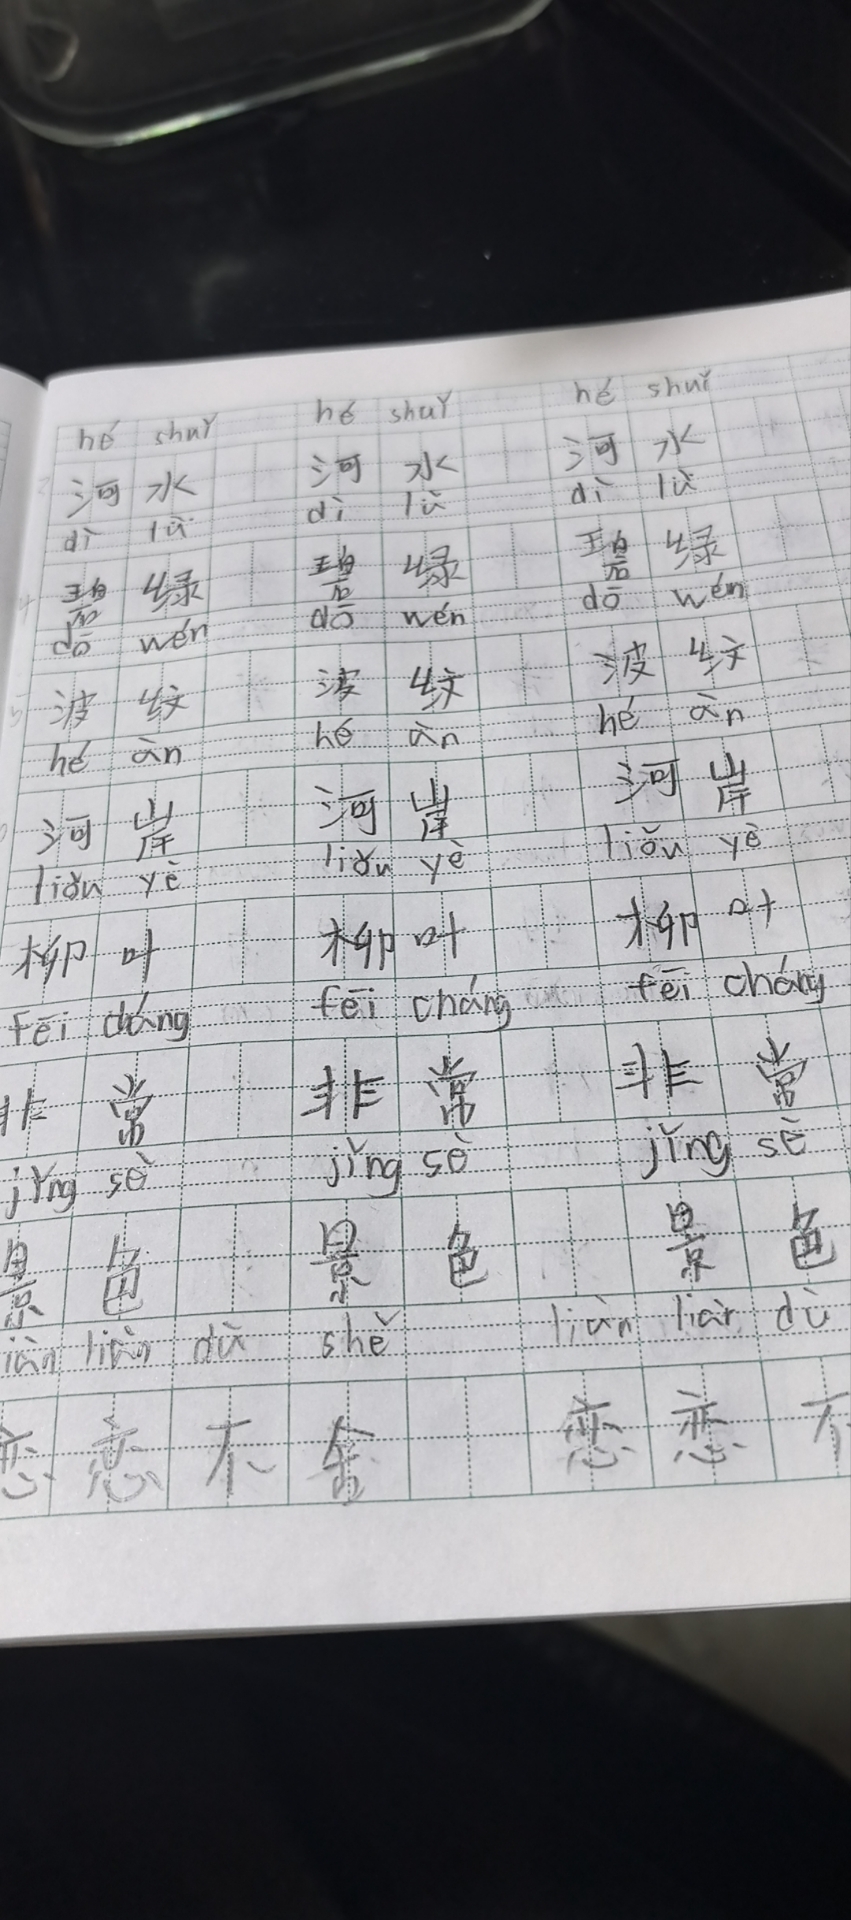 hé shuǐ hé shuǐ hé shuǐ
河水 河水 河水
dì lǜ dì lǜ dì lǜ
碧绿 碧绿 碧绿
dō wén dō wén dō wén
波纹 波纹 波纹
hé àn hé àn hé àn
河岸 河岸 河岸
liǔu yè liǔu yè liǔu yè
柳叶 柳叶 柳叶
fēi cháng fēi cháng fēi cháng
非常 非常 非常
jǐng sè jǐng sè jǐng sè
景色 景色 景色
iàn liàn dù shě liàn liàn dù
恋恋不舍 恋恋不